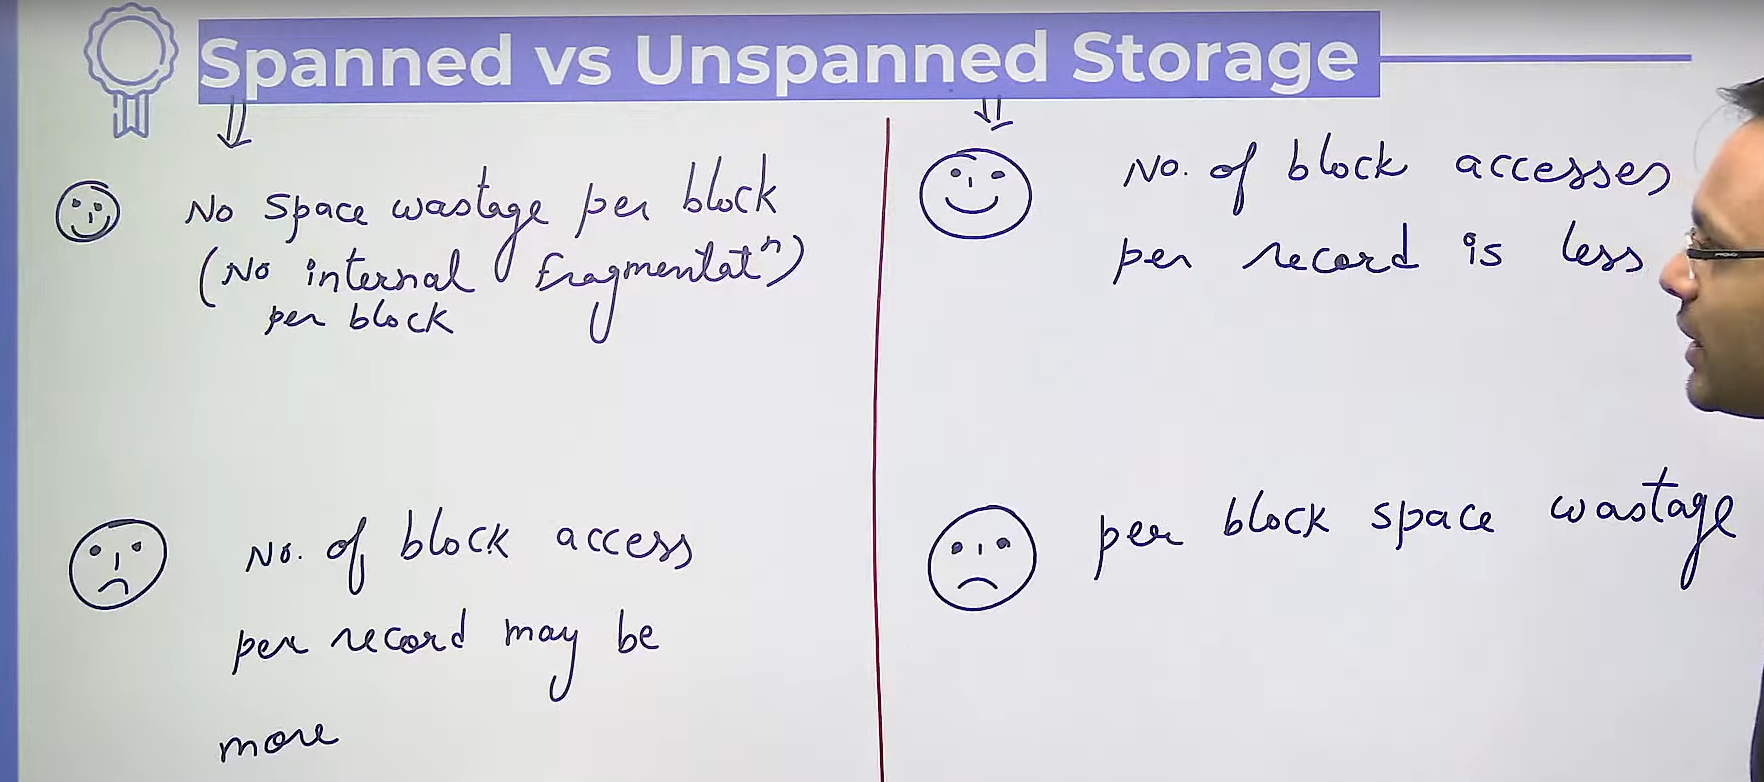 Spanned vs Unspanned Storage
No space wastage per block
(No internal fragmentatⁿ)
per block
No. of block access
per record may be
more
No. of block accesses
per record is less
per block space wastage